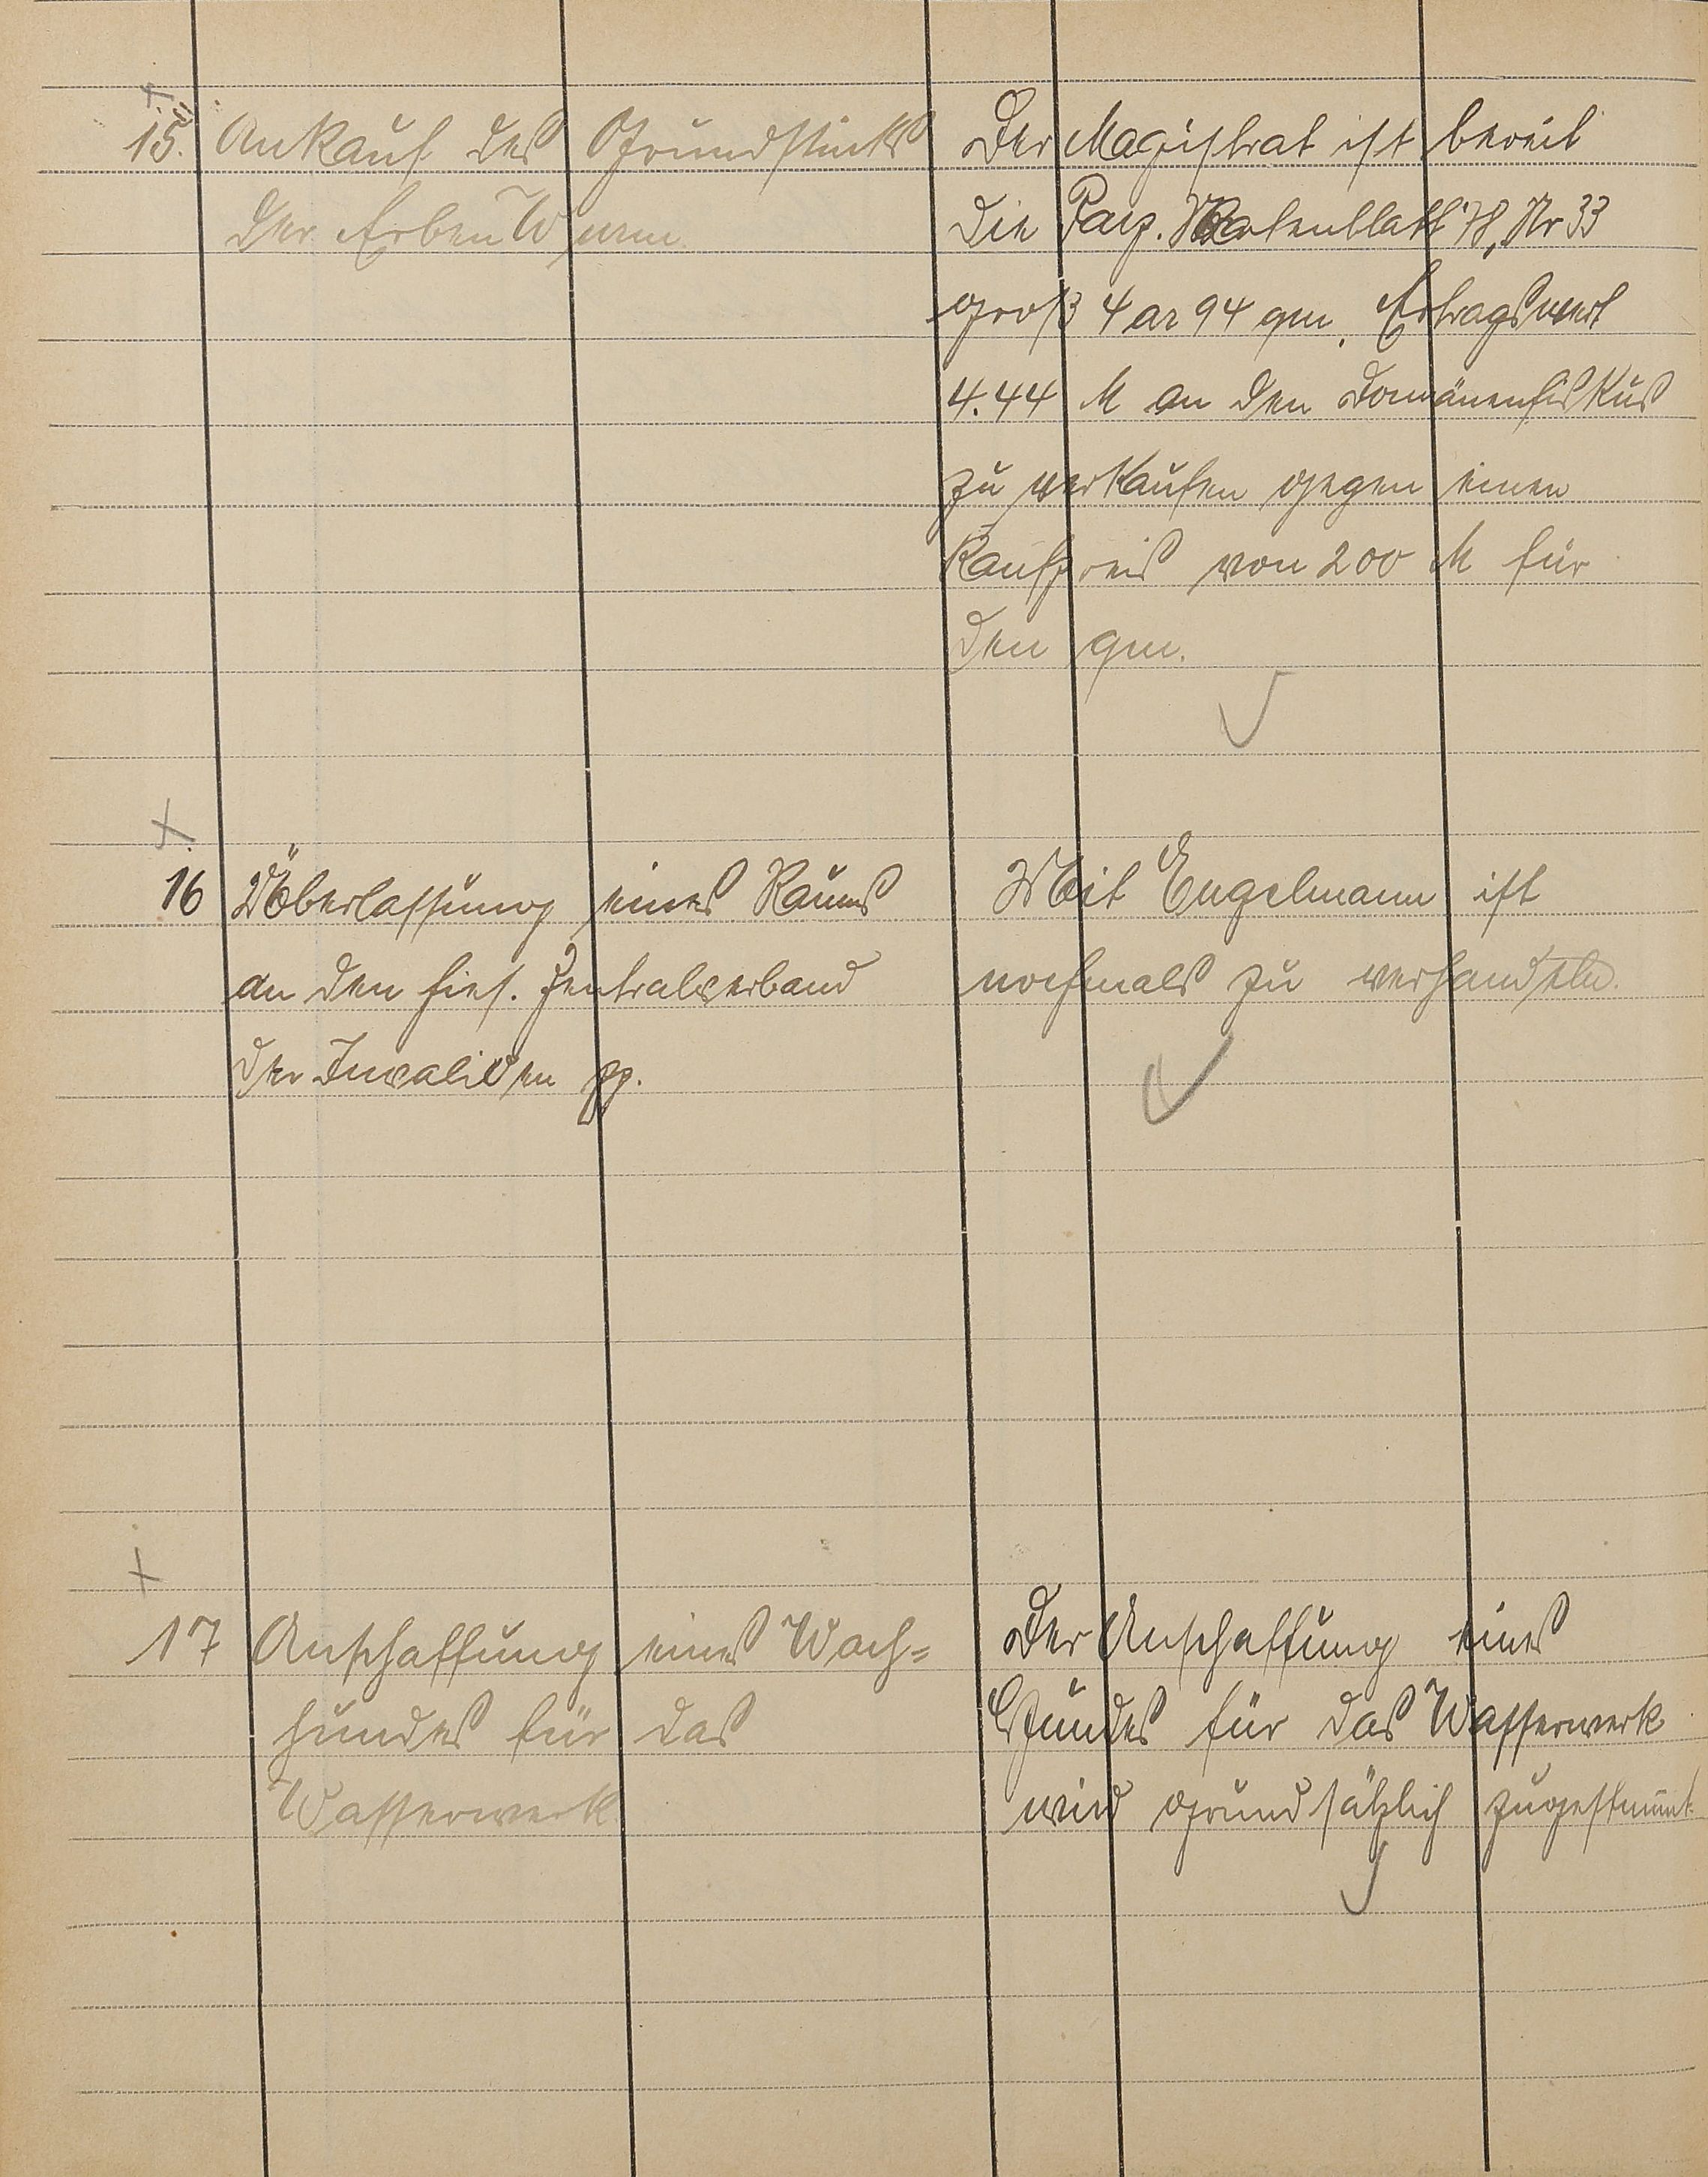 15. Ankauf des Grundstücks
der Erben Wurm
Der Magistrat ist bereit
die Parz. Kartenblatt 78, Nr 33
groß 4 ar 94 qm, Ertragswert
4.44 M an den Domänenfiskus
zu verkaufen gegen einen
Kaufpreis von 200 M für
den qm.
16 Überlassung eines Raums
an den hies. Zentralverband
der Invaliden pp.
Mit Engelmann ist
nochmals zu verhandeln.
17 Anschaffung eines Wach=
hundes für das
Wasserwerk
Der Anschaffung eines
Hundes für das Wasserwerk
wird grundsätzlich zugestimmt.